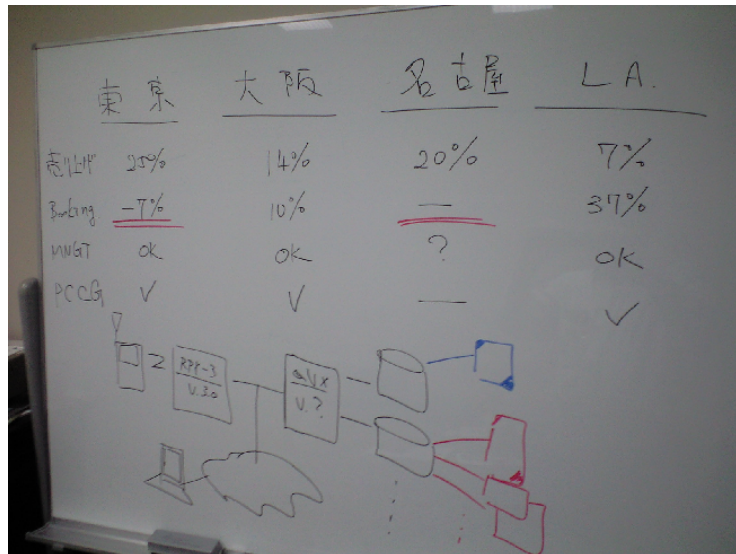 東京 大阪 名古屋 L A.
売り上げ 25% 14% 20% 7%
Booking -7% 10% — 37%
MNGT OK OK ? OK
PCCG ✓ ✓ — ✓
RPP-3
V.3.0
V.?